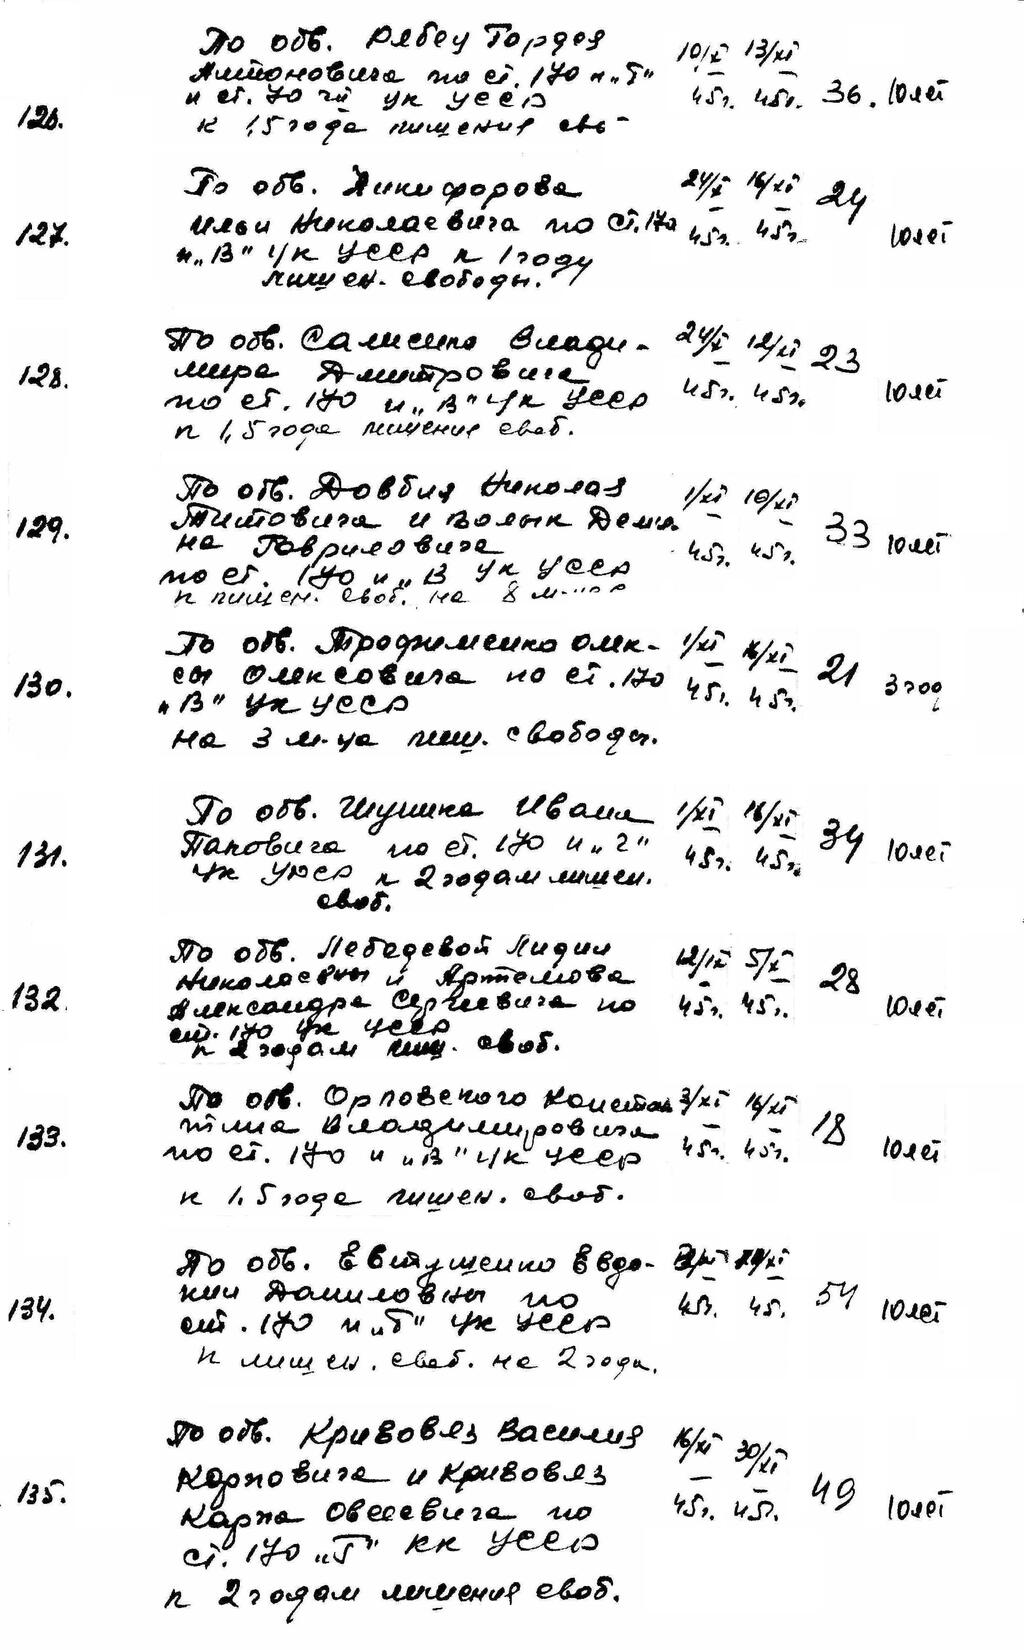 126.
По обв. Рябец Гордея
Антоновича по ст. 170 п „Г"
и ст. 70 УК УССР
к 1,5 года лишения сво-
10/X 45г.
13/XI 45г.
36.
10 лет
127.
По обв. Никифорова
Ильи Николаевича по ст. 170
п „В" УК УССР к 1 году
лишен. свободы.
24/X 45г.
16/XI 45г.
24
10 лет
128.
По обв. Самсенко Влади-
мира Дмитровича
по ст. 170 п „В" УК УССР
к 1,5 года лишения своб.
24/X 45г.
12/XI 45г.
23
10 лет
129.
По обв. Довбия Николая
Титовича и Волык Демя
на Гавриловича
по ст. 170 п „В УК УССР
к лишен. своб. на 8
1/XI 45г.
10/XI 45г.
33
10 лет
130.
По обв. Трофименко Олек-
сы Олексовича по ст. 170
„В" УК УССР
на 3 м-ца лиш. свободы.
1/XI 45г.
16/XI 45г.
21
3 год
131.
По обв. Шушка Ивана
по ст. 170 п „г"
УК УССР к 2 годам лишен.
своб.
1/XI 45г.
16/XI 45г.
34
10 лет
132
По обв. Лебедевой Лидии
Николаевны и Артемова
Александра Сергеевича по
ст. 170 УК УССР
к 2 годам лиш. своб.
12/IX 45г.
5/X 45г.
28
10 лет
133.
По обв. Орловского Констан
тина Владимировича
по ст. 170 п „В" УК УССР
к 1,5 года лишен. своб.
3/XI 45г.
16/XI 45г.
18
10 лет
134.
По обв. Евтушенко Евдо-
кии Даниловны по
ст. 170 п „Г" УК УССР
к лишен. своб. на 2 года.
45г.
45.
54
10 лет
135.
По обв. Кривовяз Василия
Карповича и Кривовяз
Карпа Овсеевича по
ст. 170 „Г" КК УССР
к 2 годам лишения своб.
16/XI 45г.
30/XI 45г.
49
10 лет